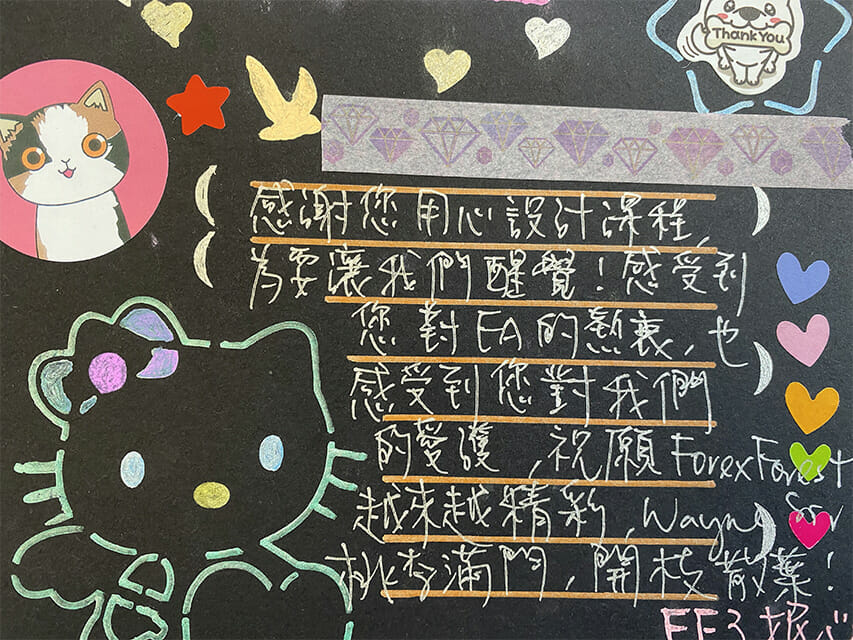 Thank You
感謝您用心設計課程,
為要讓我們醒覺!感受到
您對EA的熱衷,也
感受到您對我們
的愛護,祝願ForexForest
越來越精彩,Wayne Sir
桃李滿門,開枝散葉!